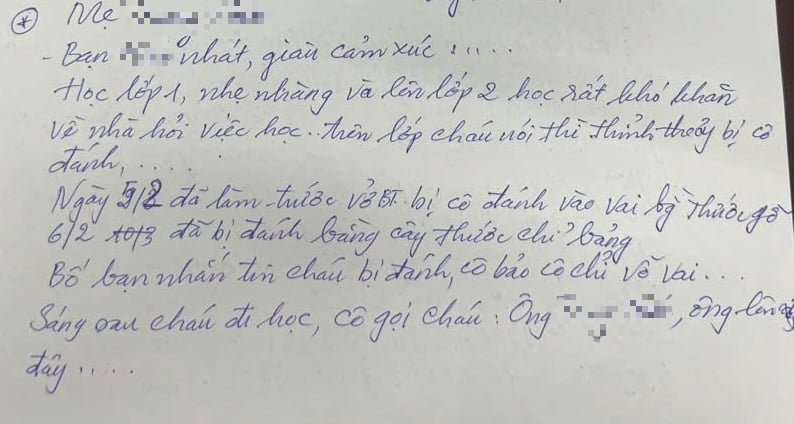 * Mẹ
- Bạn nhát, giàu cảm xúc :....
Học lớp 1, nhẹ nhàng và lên lớp 2 học rất khó khăn
Về nhà hỏi việc học.. trên lớp cháu nói thi thỉnh thoảng bị cô
đánh, ....
Ngày 5/2 đã làm trước vở BT. bị cô đánh vào vai bg thước gỗ
6/2 đã bị đánh bằng cây thước chỉ bảng
Bố bạn nhắn tin cháu bị đánh, cô bảo cô chỉ vỗ vai...
Sáng sau cháu đi học, cô gọi cháu: Ông , ông lên
đây .....